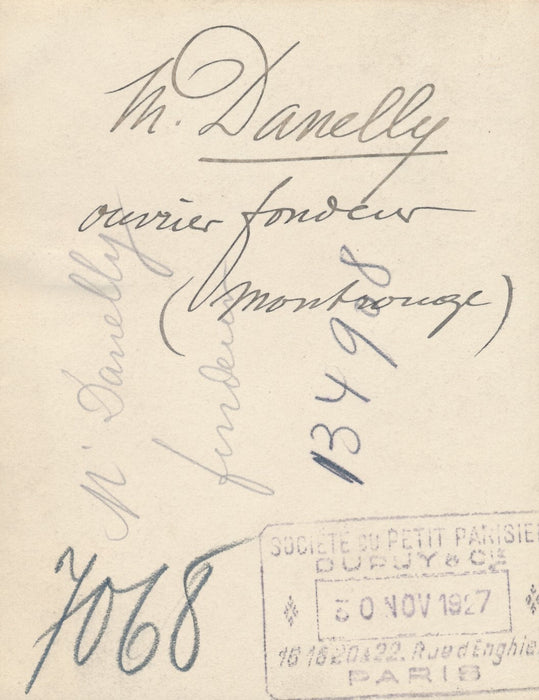 M. Danelly
ouvrier fondeur
(Montrouge)
Mr Danelly
fondeur
13498
7068
SOCIÉTÉ DU PETIT PARISIEN
DUPUY & Cie
30 NOV 1927
16 18 20 & 22, Rue d'Enghien
PARIS